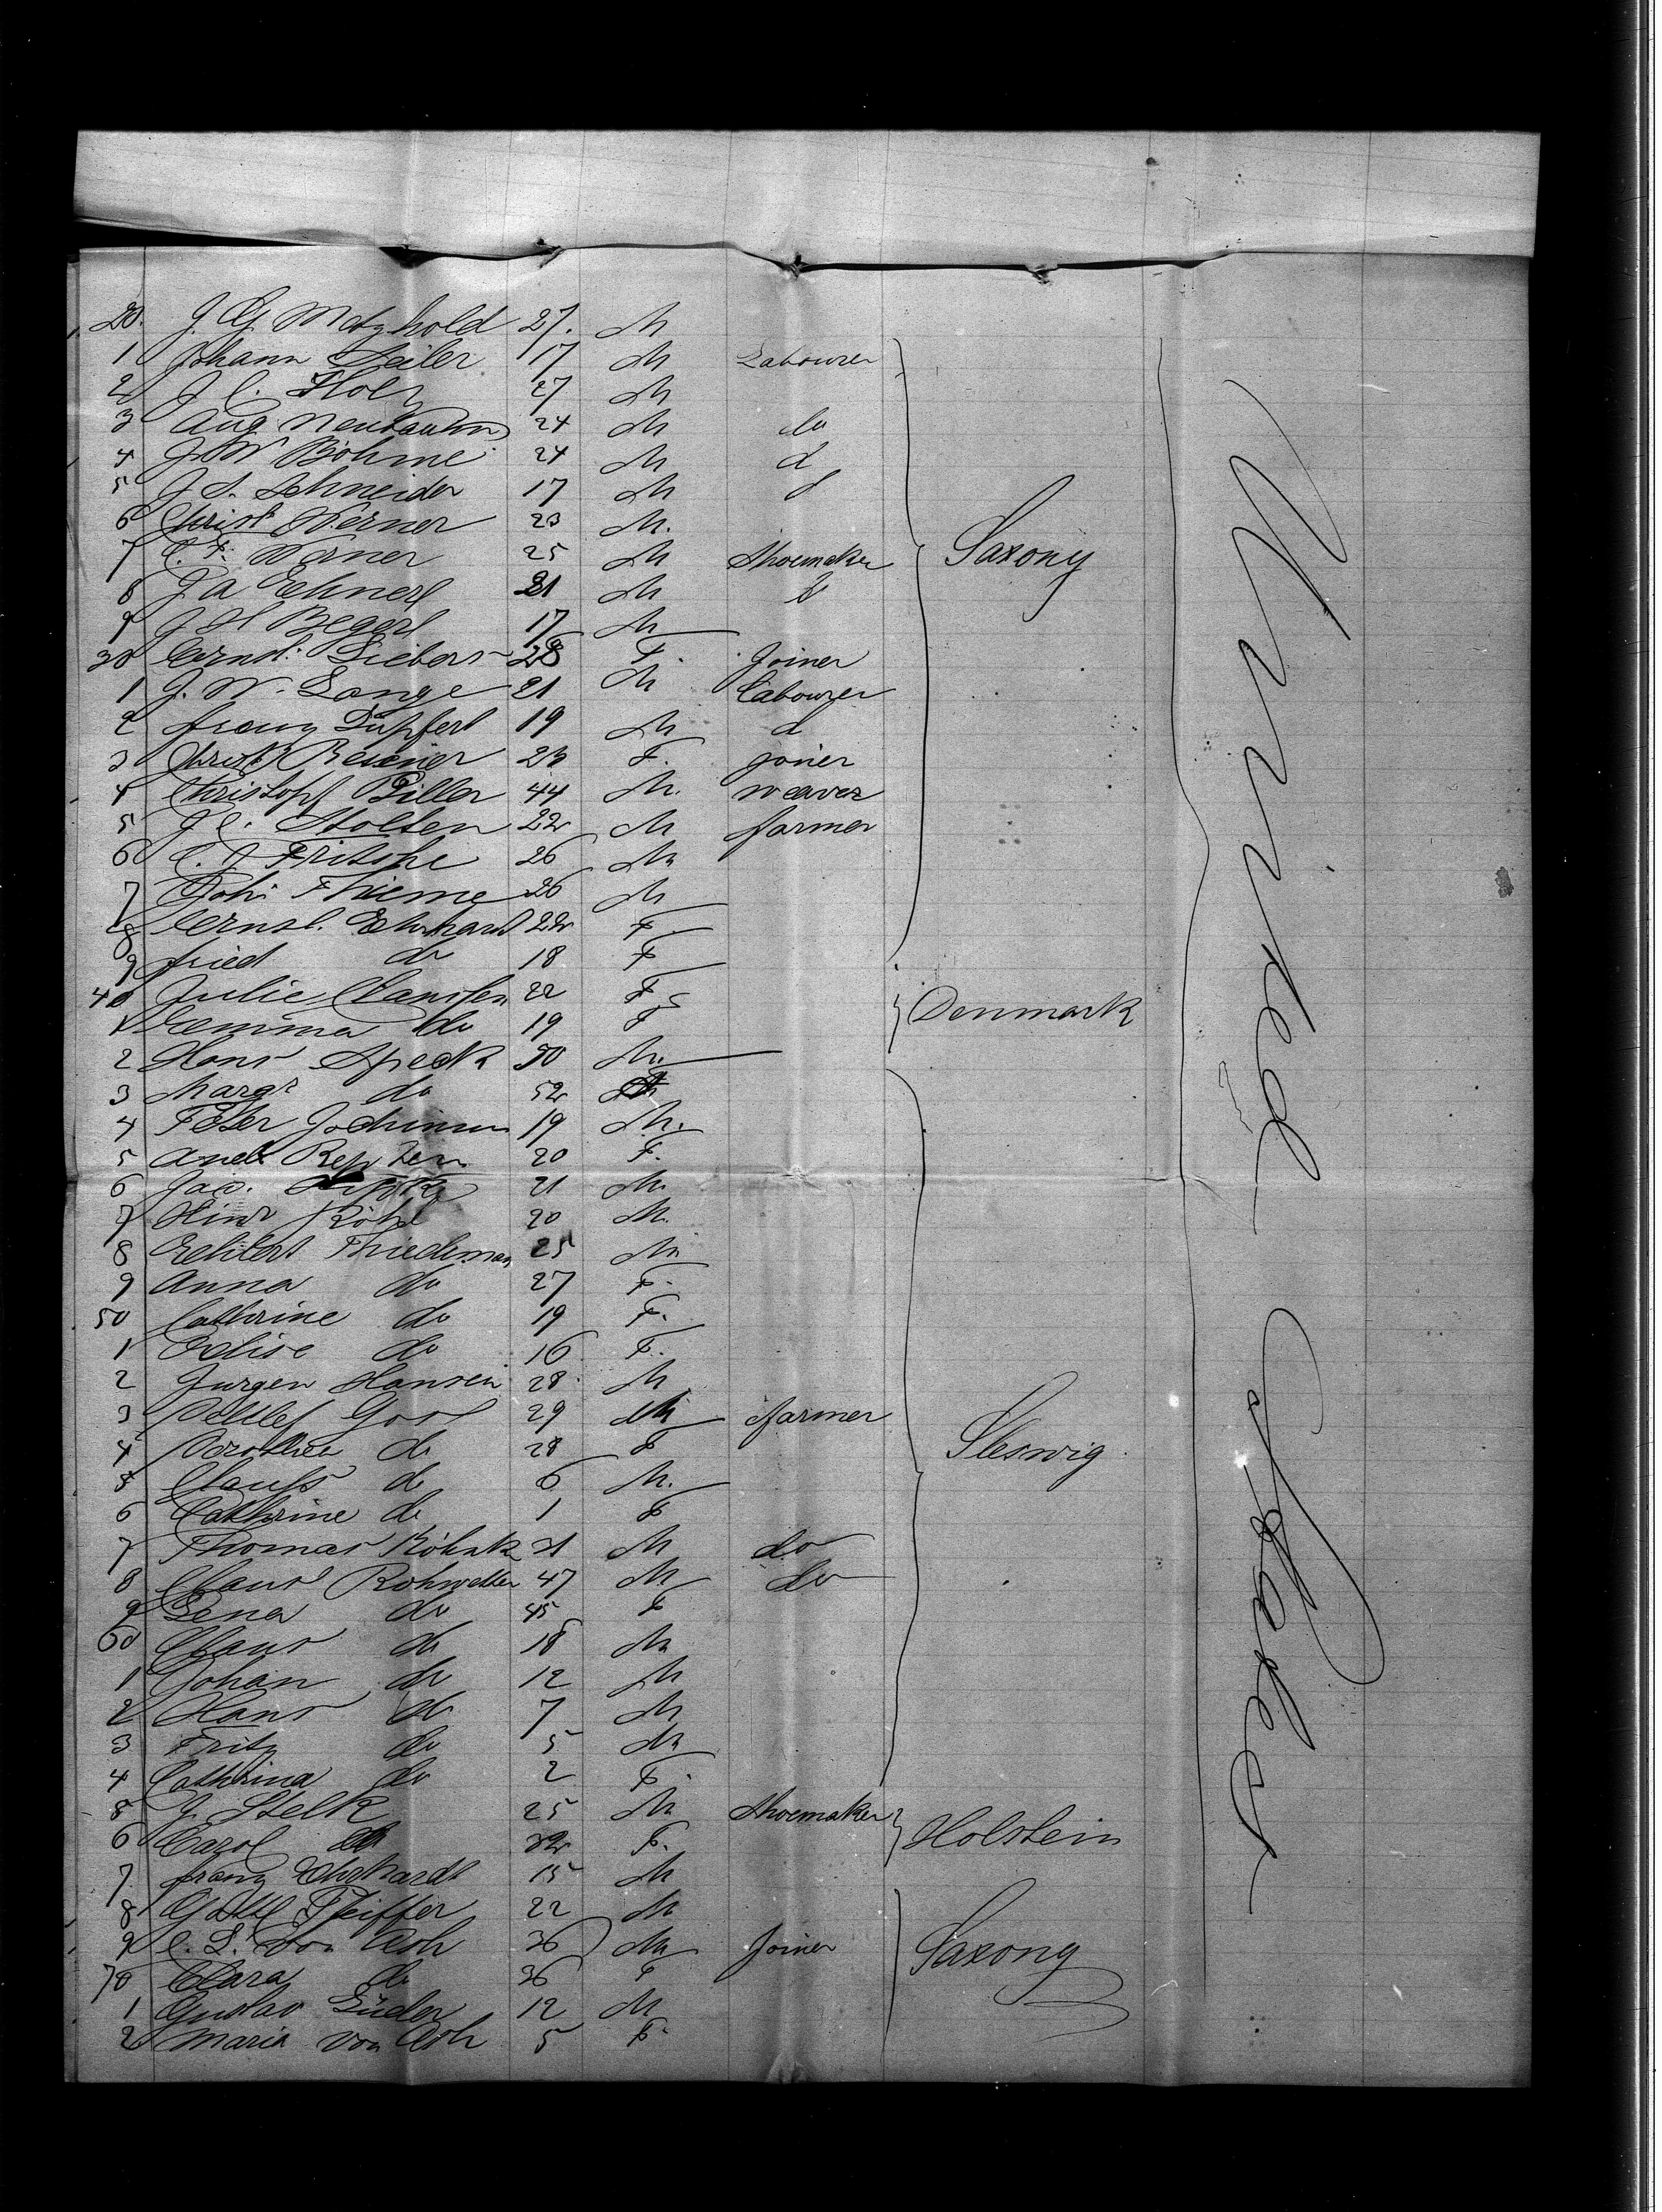 20. J. G. Metzhold 27. M
1 Johann Seiler 17 M Labourer
2 J. C. Holz 27 M
3 Aug Neubaum 24 M do
4 J. W Böhme 24 M d
5 J. S. Schneider 17 M d
6 Christ Werner 23 M.
7 C. F. Werner 25 M Shoemaker Saxony
8 J A 21 M d
9 J H 17 M
30 Ernst. Siebers 28 F. Joiner
1 J. W. Lange 21 M Labourer
2 franz 19 M d
3 Christ 23 F. joiner
4 Christoph Piller 44 M. weaver
5 J. C. Stolten 22 M farmer
6 C. J Fritsche 26 M
7 Joh. Thieme 26 M
8 Ernst. Ehrhardt 22 F
9 fried do 18 F
40 Julie Clausen 22 F Denmark
1 Emma do 19 F
2 Hans Speck 50 M.
3 Margr do 52
4 Peter Jochimsen 19 M.
5 20 F.
6 Jac. 21 M.
7 Hinr Röhl 20 M.
8 Thiedeman 25 M
9 Anna do 27 F.
50 Cathrine do 19 F.
1 Elise do 16 F.
2 Jurgen Hansen 28 M
3 Detlef Goos 29 M farmer
4 Dorothee do 28 F Sleswig.
5 Clauss do 6 M.
6 Cathrine do 1 F
7 Thomas 21 M do
8 Claus Rohwetter 47 M do
9 Lena do 45 F
60 Claus do 18 M
1 Johan do 12 M
2 Hans do 7 M
3 Fritz do 5 M
4 Cathrina do 2 F.
5 J. Stelk 25 M Shoemaker Holstein
6 Carol do 22 F.
7. franz Ehrhardt 15 M
8 Gottl Pfeiffer 22 M
9 C. L. von Ash 36 M Joiner Saxony
70 Clara do 36 F
1 Gustav 12 M
2 Maria von Ash 5 F.
United States